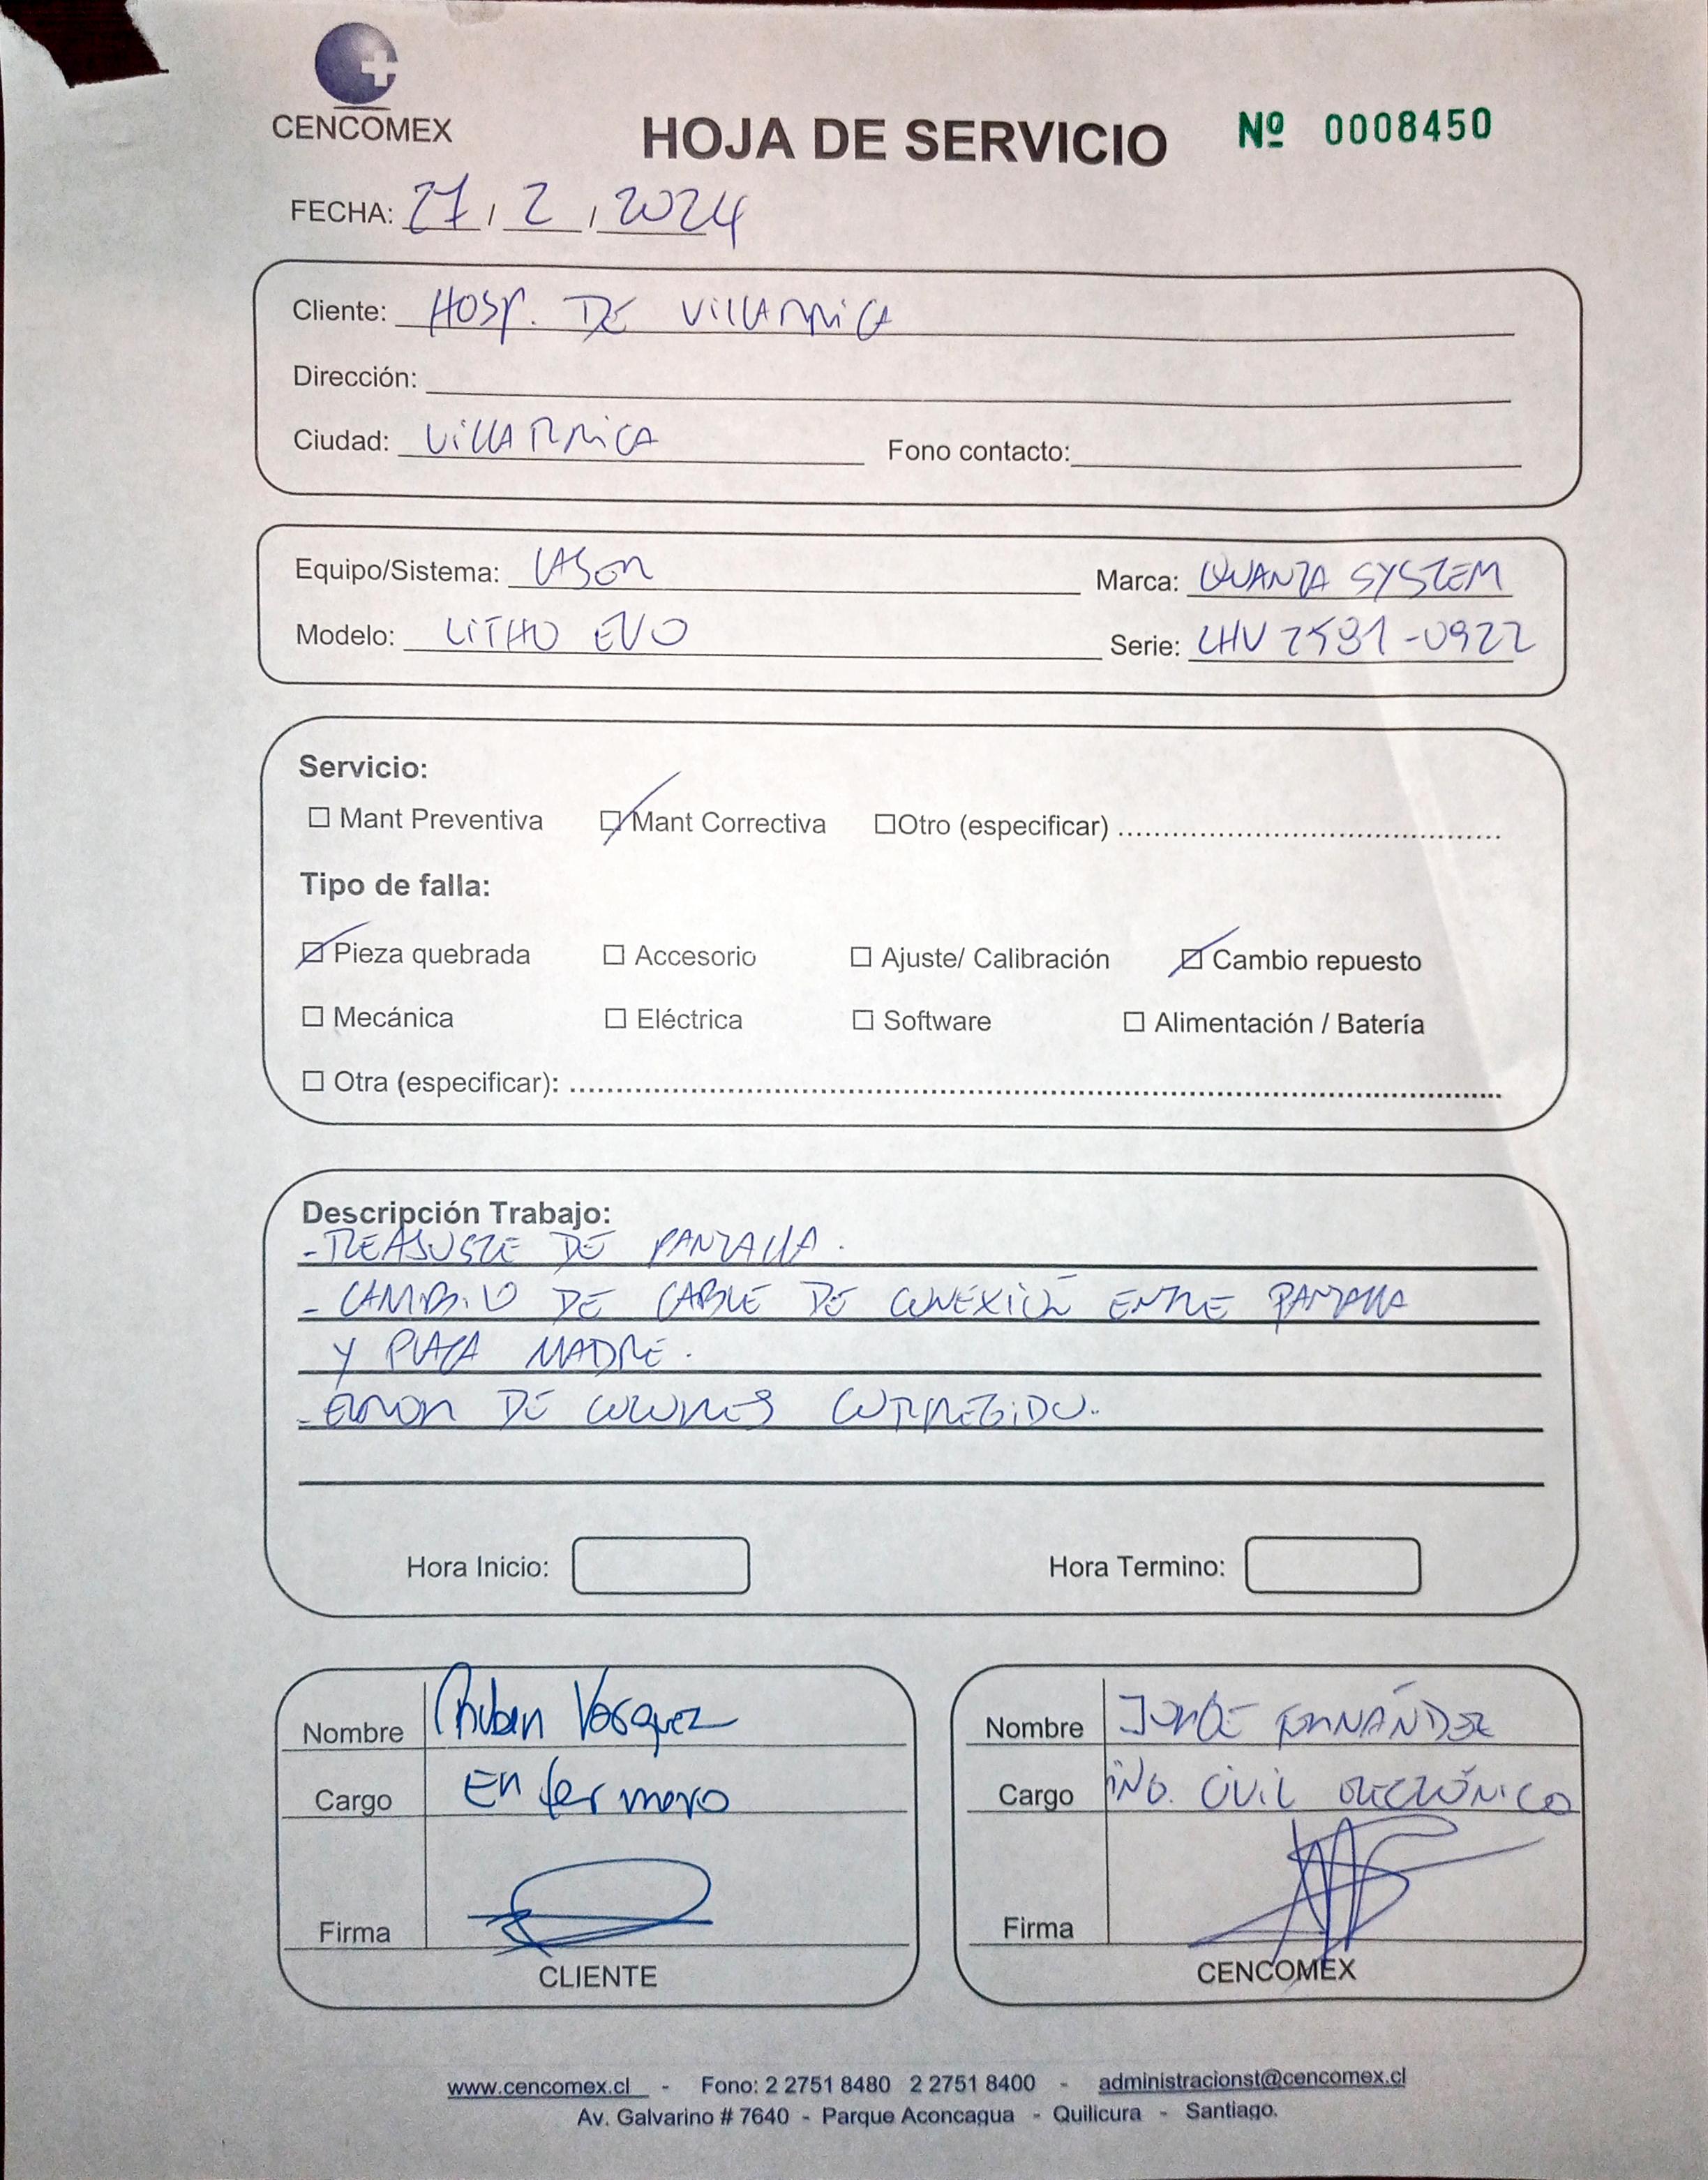 CENCOMEX
HOJA DE SERVICIO Nº 0008450
FECHA: 27 / 2 / 2024
Cliente: HOSP. DE VILLARRICA
Dirección:
Ciudad: VILLARRICA Fono contacto:
Equipo/Sistema: LASER Marca: QUANTA SYSTEM
Modelo: LITHO EVO Serie: LHV 2531-0922
Servicio:
☐ Mant Preventiva ☑ Mant Correctiva ☐ Otro (especificar) ........................................
Tipo de falla:
☑ Pieza quebrada ☐ Accesorio ☐ Ajuste/ Calibración ☑ Cambio repuesto
☐ Mecánica ☐ Eléctrica ☐ Software ☐ Alimentación / Batería
☐ Otra (especificar): ........................................
Descripción Trabajo:
- REAJUSTE DE PANTALLA.
- CAMBIO DE CABLE DE CONEXIÓN ENTRE PANTALLA
Y PLACA MADRE.
- ERROR DE COLORES CORREGIDO.
Hora Inicio: Hora Termino:
Nombre Ruben Vasquez
Cargo Enfermero
Firma
CLIENTE
Nombre JORGE FERNÁNDEZ
Cargo ING. CIVIL ELECTRÓNICO
Firma
CENCOMEX
www.cencomex.cl - Fono: 2 2751 8480 2 2751 8400 - administracionst@cencomex.cl
Av. Galvarino # 7640 - Parque Aconcagua - Quilicura - Santiago.